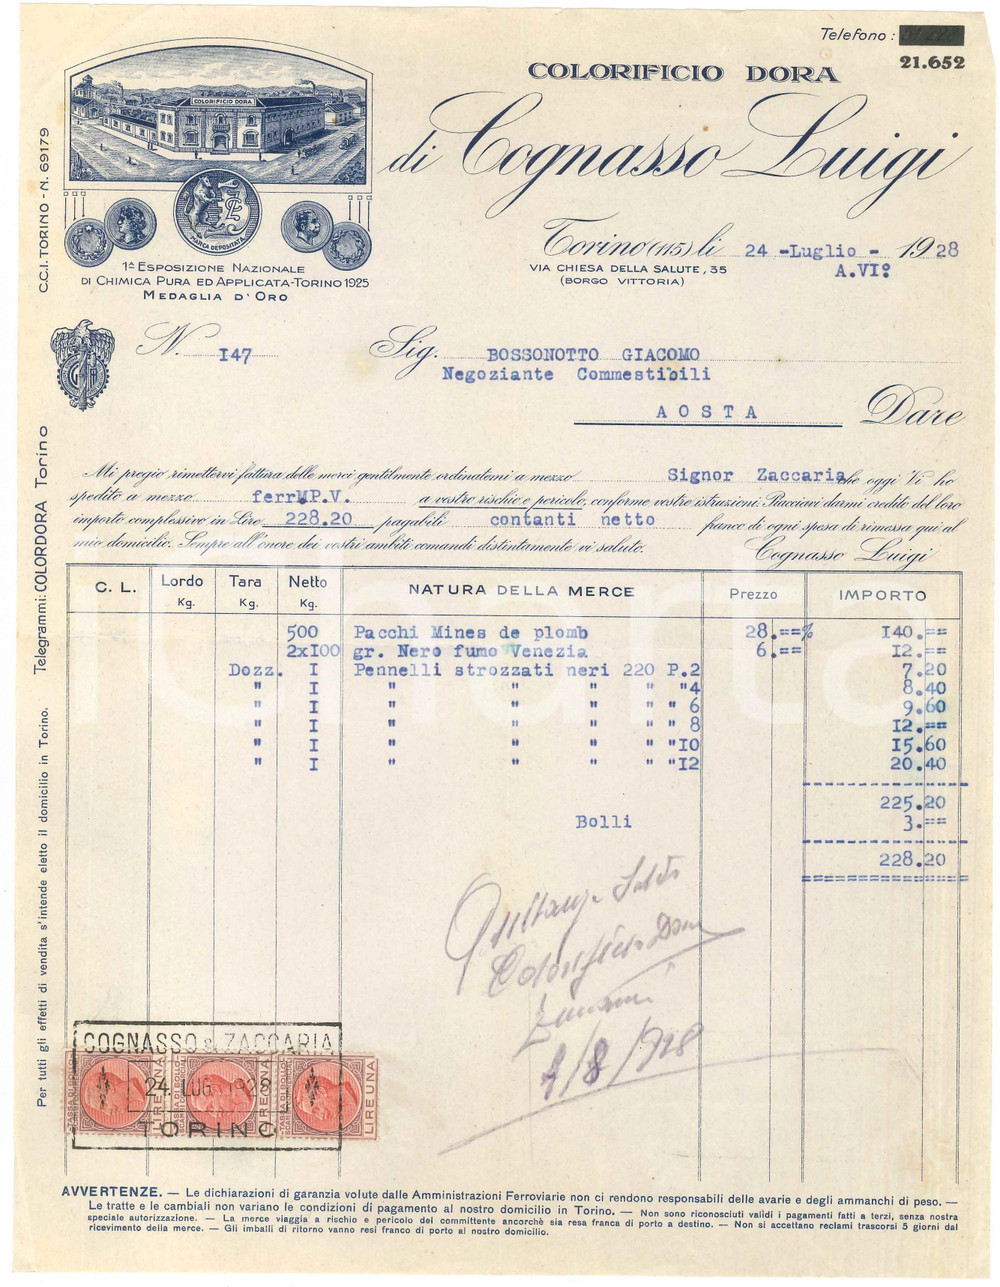 Telefono :
21.652
COLORIFICIO DORA
di Cognasso Luigi
COLORIFICIO DORA
MARCA DEPOSITATA
1ª ESPOSIZIONE NAZIONALE
DI CHIMICA PURA ED APPLICATA-TORINO 1925
MEDAGLIA D'ORO
Torino (115) li 24 -Luglio - 1928
A.VI°
VIA CHIESA DELLA SALUTE, 35
(BORGO VITTORIA)
C.C.I. TORINO - N. 69179
N. I47
Sig. BOSSONOTTO GIACOMO
Negoziante Commestibili
AOSTA
Dare
Mi pregio rimettervi fattura delle merci gentilmente ordinatemi a mezzo Signor Zaccaria che oggi Vi ho
spedito a mezzo ferrMP.V. a vostro rischio e pericolo, conforme vostre istruzioni. Piacciavi darmi credito del loro
importo complessivo in Lire 228.20 pagabili contanti netto franco di ogni spesa di rimessa qui al
mio domicilio. Sempre all'onore dei vostri ambiti comandi distintamente vi saluto.
Cognasso Luigi
Telegrammi: COLORDORA Torino
Per tutti gli effetti di vendita s'intende eletto il domicilio in Torino.
C. L. Lordo Kg. Tara Kg. Netto Kg. NATURA DELLA MERCE Prezzo IMPORTO
500 Pacchi Mines de plomb 28.==% I40.==
2xI00 gr. Nero fumo Venezia 6.== I2.==
Dozz. I Pennelli strozzati neri 220 P.2 7.20
" I " " " " "4 8.40
" I " " " " " 6 9.60
" I " " " " " 8 I2.==
" I " " " " "IO I5.60
" I " " " " "I2 20.40
225.20
Bolli 3.==
228.20
Colorificio Dora
4/8/1928
COGNASSO & ZACCARIA
24 LUG. 1928
TORINO
LIRE UNA
LIRE UNA
LIRE UNA
AVVERTENZE. — Le dichiarazioni di garanzia volute dalle Amministrazioni Ferroviarie non ci rendono responsabili delle avarie e degli ammanchi di peso. —
Le tratte e le cambiali non variano le condizioni di pagamento al nostro domicilio in Torino. — Non sono riconosciuti validi i pagamenti fatti a terzi, senza nostra
speciale autorizzazione. — La merce viaggia a rischio e pericolo del committente ancorchè sia resa franca di porto a destino. — Non si accettano reclami trascorsi 5 giorni dal
ricevimento della merce. — Gli imballi di ritorno vanno resi franco di porto al nostro domicilio.